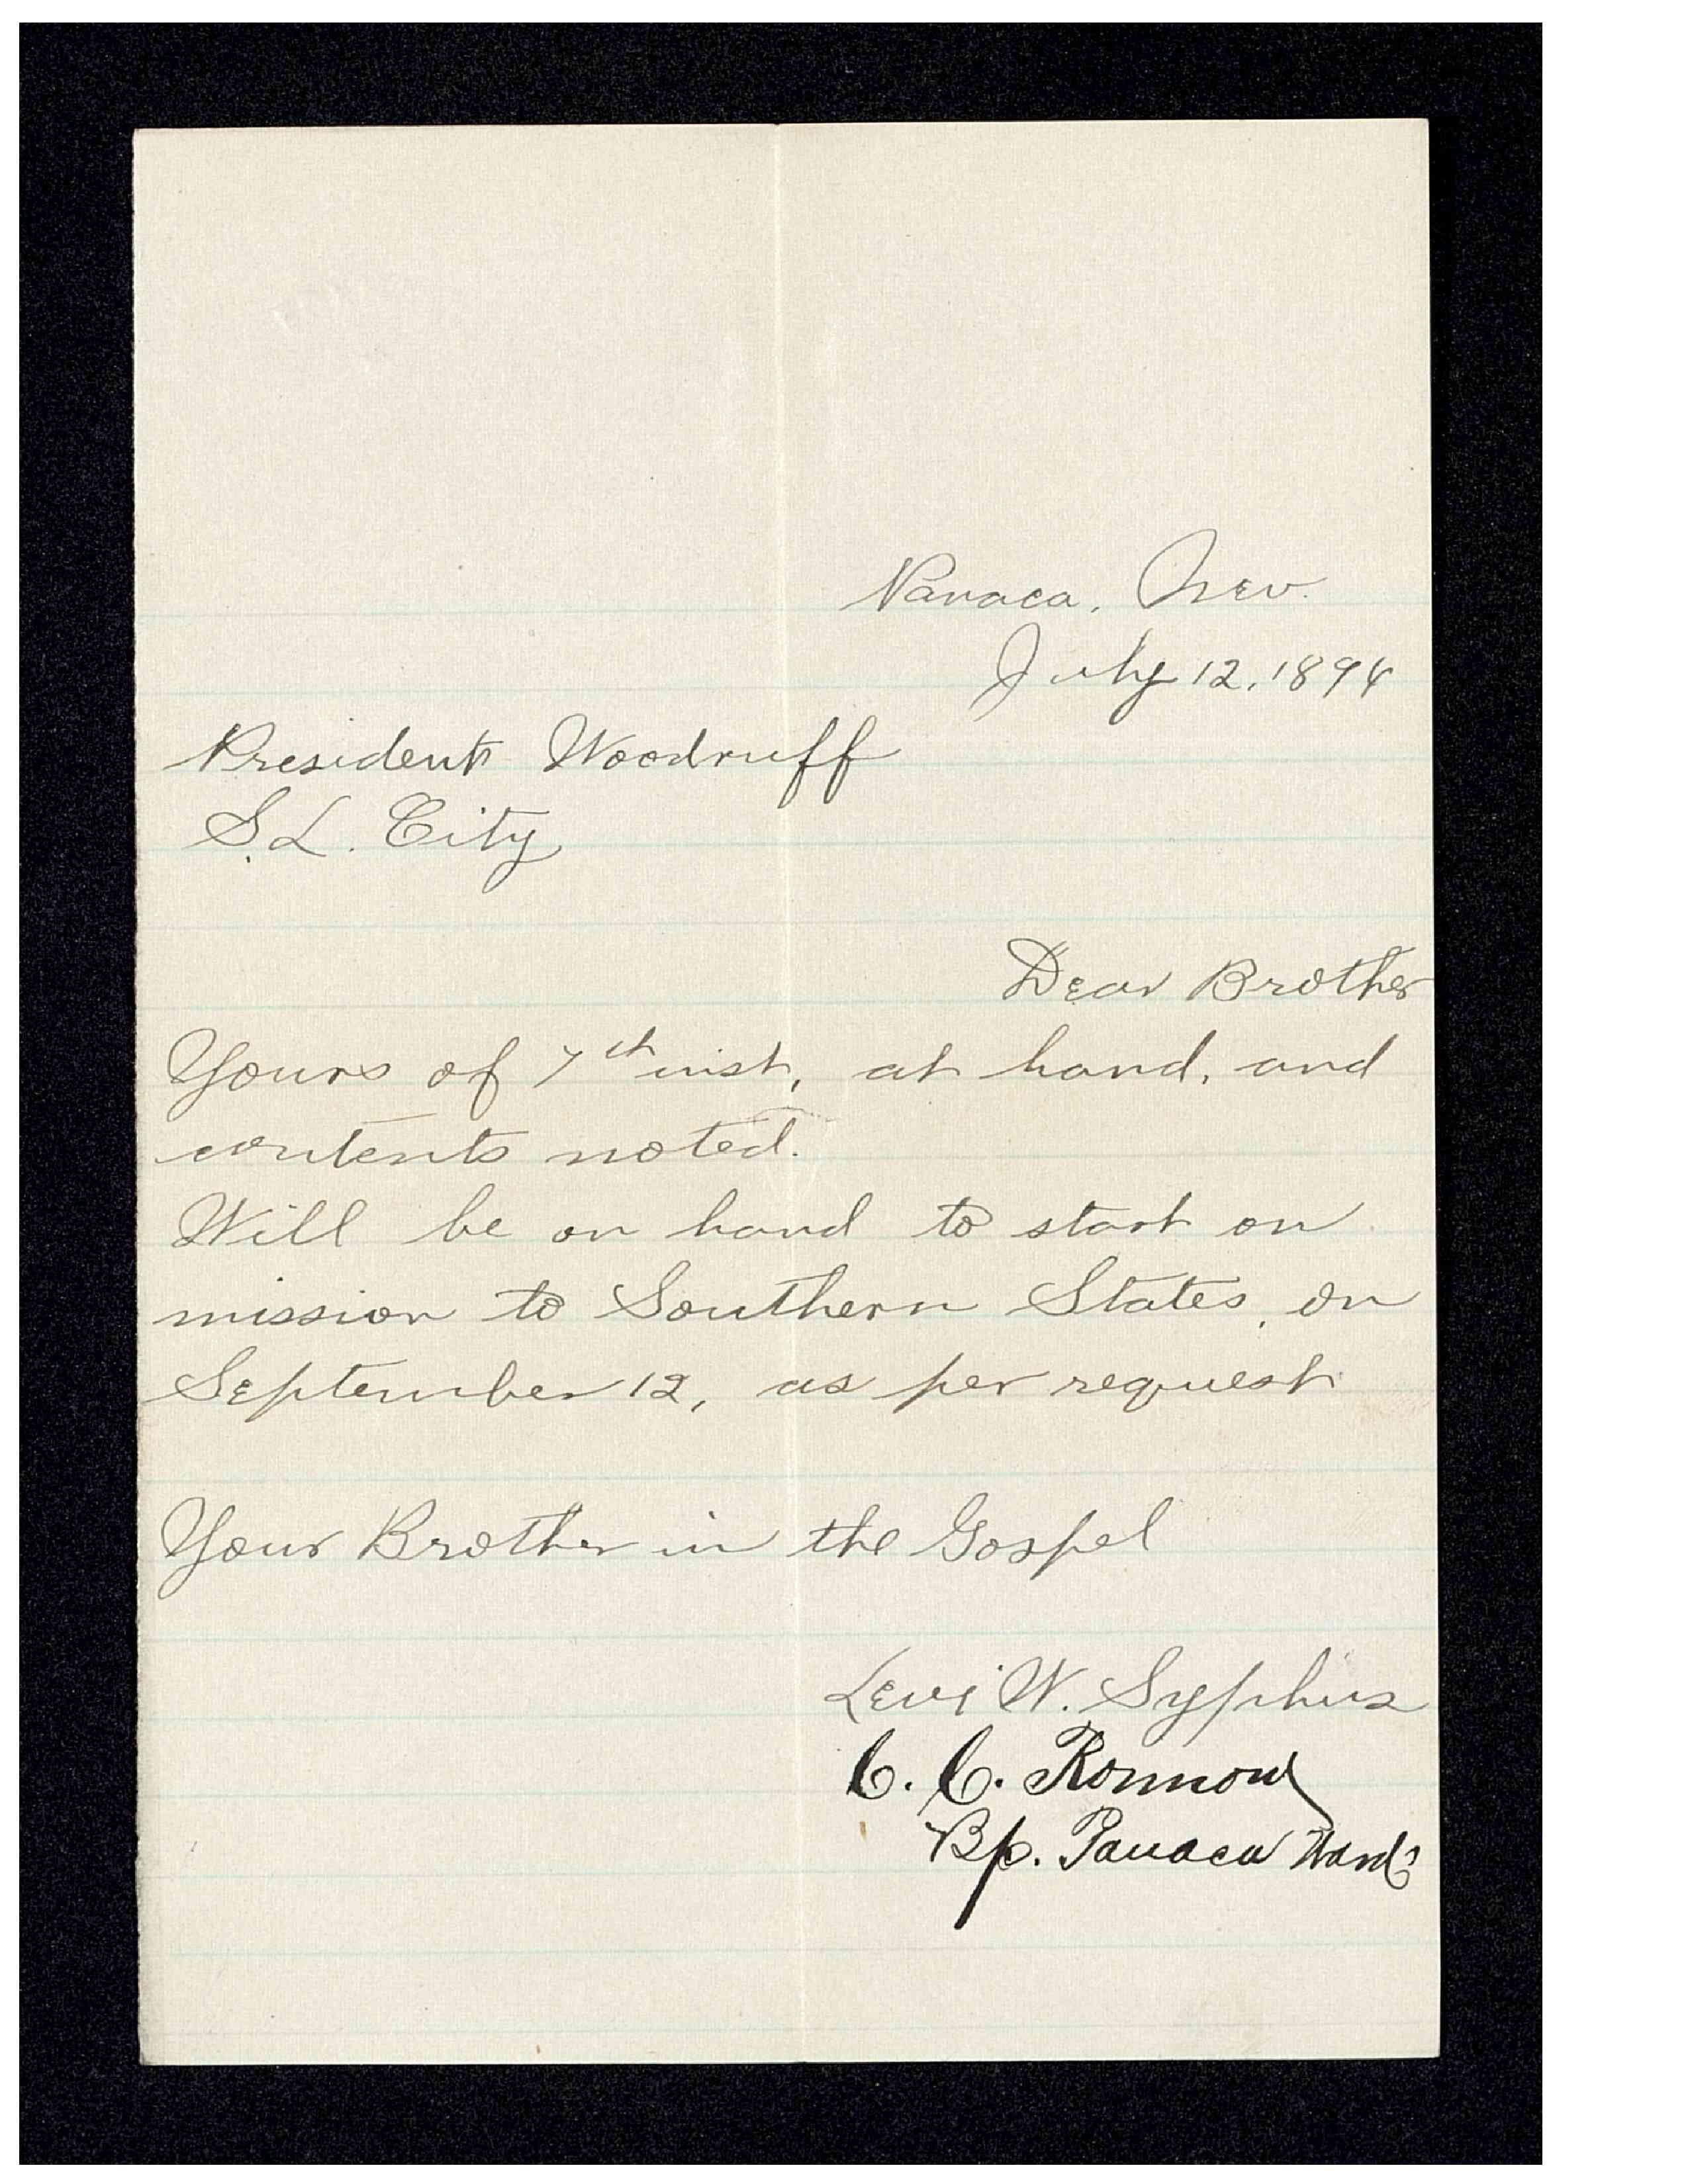 Panaca, Nev.
July 12, 1894
President Woodruff
S.L. City
Dear Brother
Yours of 7th inst, at hand, and
contents noted.
Will be on hand to start on
mission to Southern States, on
September 12, as per request
Your Brother in the Gospel
Levi W. Syphus
C. C. Ronnow
Bp. Panaca Ward